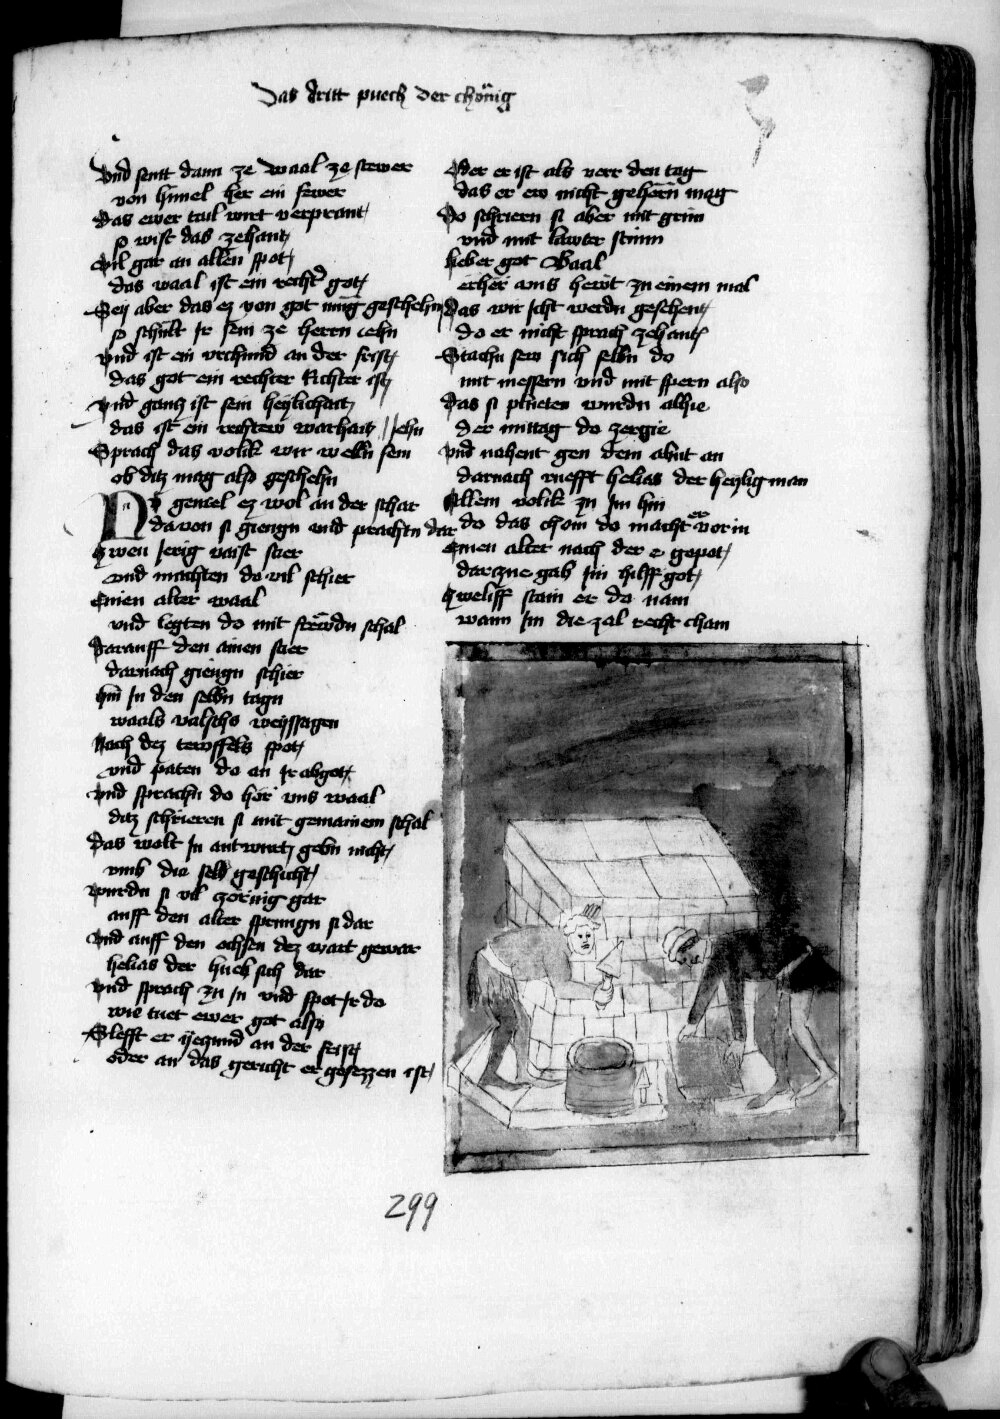 Das dritt puech der chönig
Vnd sentt dann ze Waal ze stewer
von himel her ein fewer
Das ewer tail wirt verprant
so wist das zehant
Vil gar an allen spot
das waal ist ein rechter got
Sey aber das ez von got müg geschehn
so schült Ir sein ze herrn iehn
Vnd ist ein vrchund an der frist
das got ein rechter Richter ist
Vnd gantz ist sein heylichait
das ist ein rechtew warhait / sehn
Sprach das volkk wir welln sein
ob ditz mag also geschehn
Nv geuiel ez wol an der schar
davon si giengn vnd prachtn dar
Zwen Jerig vaist stier
vnd machten do vil schier
Einen alter waal
vnd legten do mit frëwdn schal
Darauff den ainen stier
darnach giengn schier
hin In den selbn tagn
waals valschs weyssagen
Nach dez tewffels spot
vnd paten do an Ir abgot
Vnd sprachn do hör vns waal
ditz schrieren si mit gemainem schal
Das wolt In antwurt gebn nicht
vmb die selb geschicht
Wurdn si vil zornig gar
auff den alter sprungn si dar
Vnd auff den ochsen dez wart gewar
helias der hueb sich dar
Vnd sprach zu In vnd spot Ir do
wie tuet ewer got also
Slefft er yezund an der frist
oder an das gericht er gesezzen ist
Oder er ist als verr den tag
das er ew nicht gehörn mag
Do schriern si aber mit grim
vnd mit lawter stimm
lieber got Baal
erhör vns hewt zu einem mal
Das wir Icht werdn geschent
do er nicht sprach zehant
Stachn sew sich selbn do
mit messern vnd mit spern also
Das si plueten wurdn alhie
der mittag do zergie
Vnd nahent gen dem abnt an
darnach rueft helias der heylig man
Allem volkk zu Im hin
do das chom do macht er vor in
Einen alter nach der e gepot
darczue gab Im hilff got
Zweliff stain er do nam
wann Im die zal recht cham
299